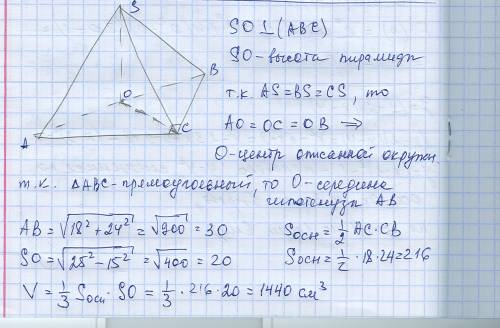 S
B
O
C
A
SO⊥(ABC)
SO-высота пирамиды
т.к AS=BS=CS, то
AO=OC=OB ⇒
O-центр описанной окружн.
т.к. ΔABC-прямоугольный, то O-середина
гипотенузы AB
AB=√18²+24²=√900=30
Sосн=½AC·CB
SO=√25²-15²=√400=20
Sосн=½·18·24=216
V=⅓Sосн·SO=⅓·216·20=1440 см³